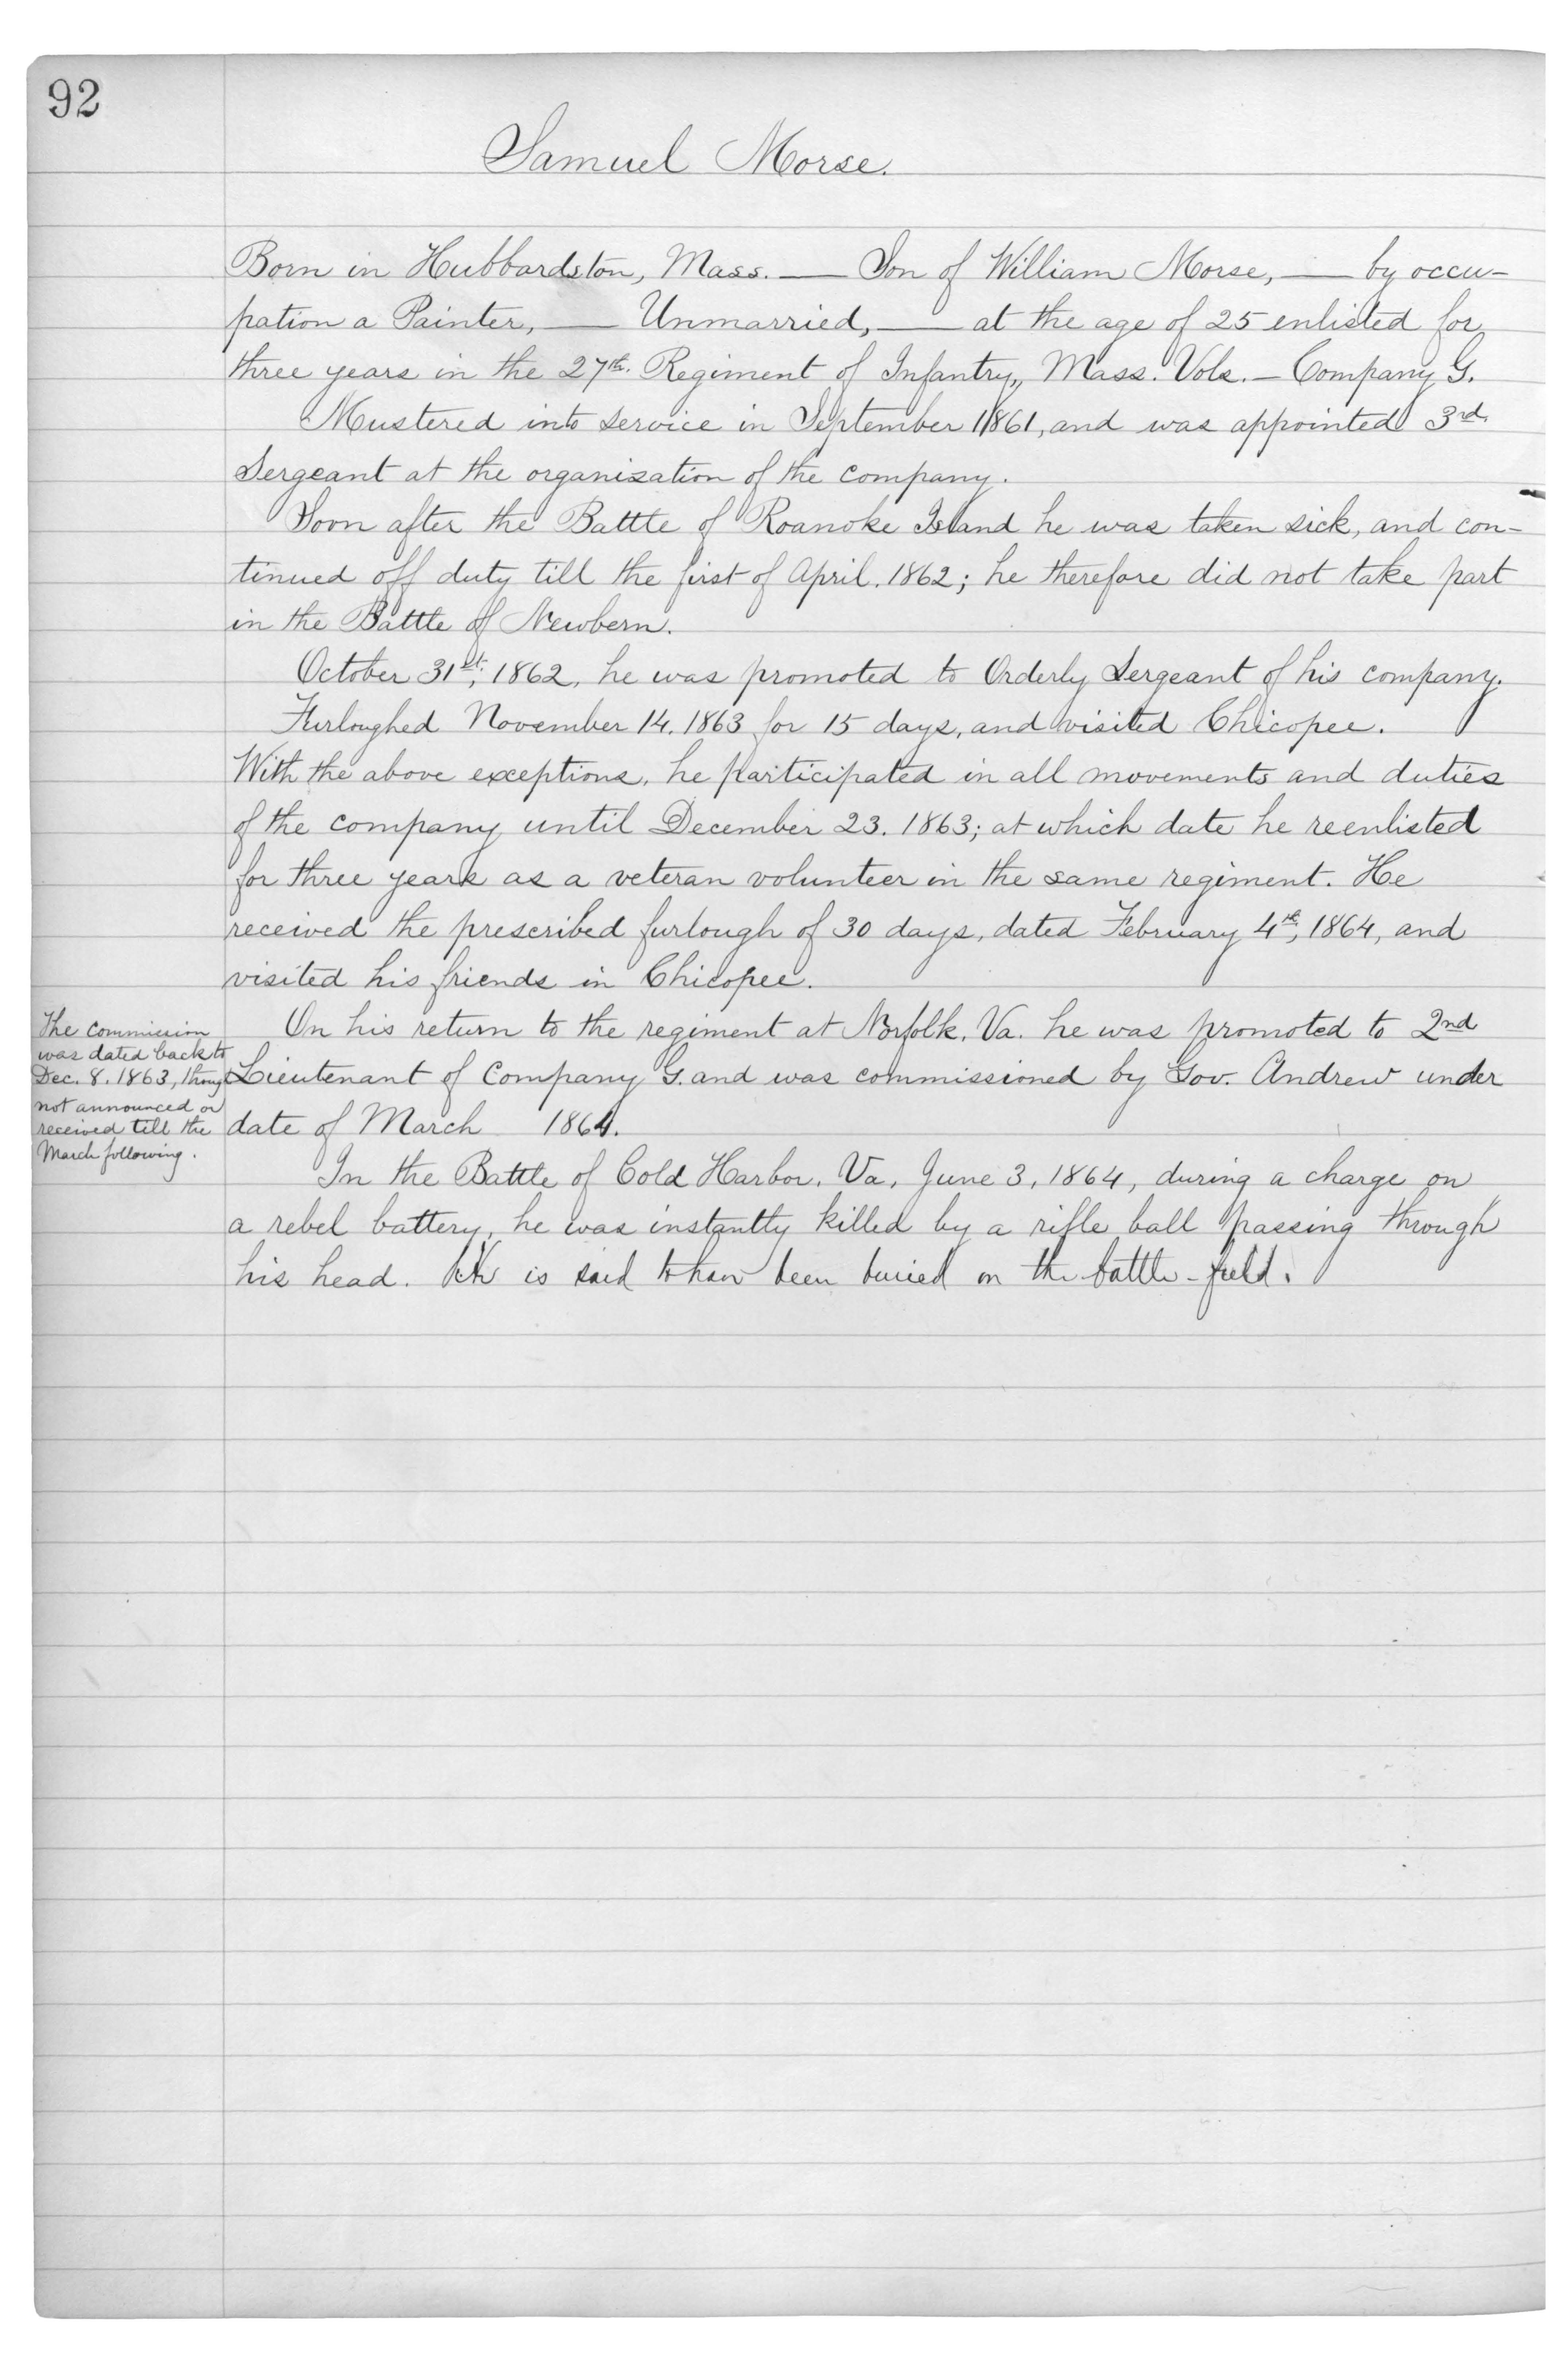 92
Samuel Morse.
Born in Hubbardston, Mass. — Son of William Morse, — by occu-
pation a Painter, — Unmarried, — at the age of 25 enlisted for
three years in the 27th. Regiment of Infantry, Mass. Vols. — Company G.
Mustered into service in September 1861, and was appointed 3rd
Sergeant at the organization of the company.
Soon after the Battle of Roanoke Island he was taken sick, and con-
tinued off duty till the first of April. 1862; he therefore did not take part
in the Battle of Newbern.
October 31st, 1862, he was promoted to Orderly Sergeant of his company.
Furloughed November 14. 1863 for 15 days, and visited Chicopee.
With the above exceptions, he participated in all movements and duties
of the company until December 23. 1863; at which date he reenlisted
for three years as a veteran volunteer in the same regiment. He
received the prescribed furlough of 30 days, dated February 4th, 1864, and
visited his friends in Chicopee.
On his return to the regiment at Norfolk, Va. he was promoted to 2nd
Lieutenant of Company G. and was commissioned by Gov. Andrew under
date of March 1864.
The commission
was dated back to
Dec. 8. 1863, though
not announced or
received till the
March following.
In the Battle of Cold Harbor, Va, June 3, 1864, during a charge on
a rebel battery, he was instantly killed by a rifle ball passing through
his head. He is said to have been buried on the battle-field.